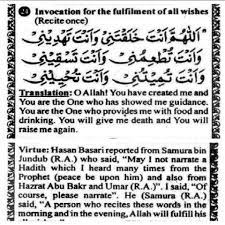 26 Invocation for the fulfilment of all wishes
(Recite once)
اَللّٰهُمَّ اَنْتَ خَلَقْتَنِىْ وَاَنْتَ تَهْدِيْنِىْ
وَاَنْتَ تُطْعِمُنِىْ وَاَنْتَ تَسْقِيْنِىْ
وَاَنْتَ تُمِيْتُنِىْ وَاَنْتَ تُحْيِيْنِىْ
Translation: O Allah! You have created me and
You are the One who has showed me guidance.
You are the One who provides me with food and
drinking. You will give me death and You will
raise me again.
Virtue: Hasan Basari reported from Samura bin
Jundub (R.A.) who said, "May I not narrate a
Hadith which I heard many times from the
Prophet (peace be upon him) and also from
Hazrat Abu Bakr and Umar (R.A.)". I said, "Of
course, please narrate". He (Samura (R.A.)
said, "A person who recites these words in the
morning and in the evening, Allah will fulfill his